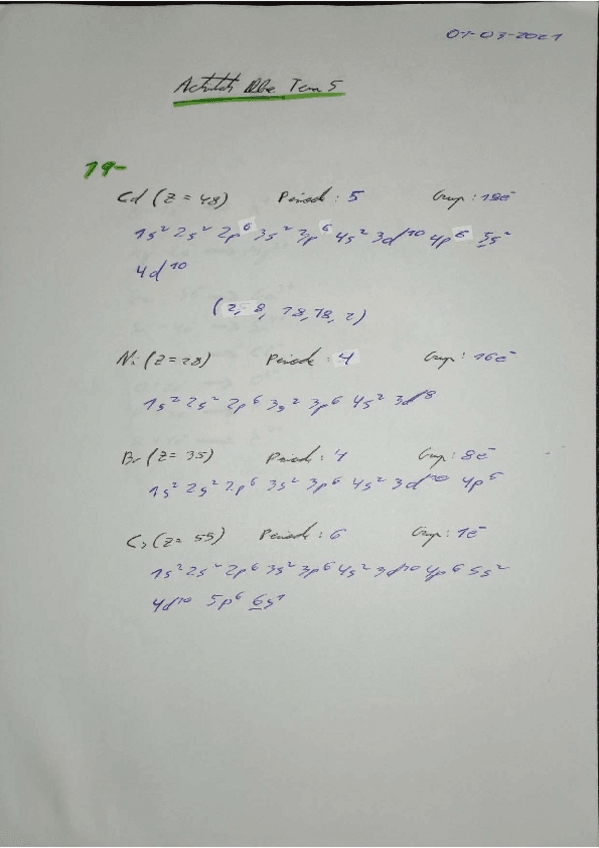 01-03-2021
Tema 5
19-
Cd (Z = 48) Període : 5 Grup : 18e⁻
1s² 2s² 2p⁶ 3s² 3p⁶ 4s² 3d¹⁰ 4p⁶ 5s²
4d¹⁰
(2, 8, 18, 18, 2)
Ni (Z = 28) Període : 4 Grup : 16e⁻
1s² 2s² 2p⁶ 3s² 3p⁶ 4s² 3d⁸
Br (Z = 35) Període : 4 Grup : 8e⁻
1s² 2s² 2p⁶ 3s² 3p⁶ 4s² 3d¹⁰ 4p⁵
Cs (Z = 55) Període : 6 Grup : 1e⁻
1s² 2s² 2p⁶ 3s² 3p⁶ 4s² 3d¹⁰ 4p⁶ 5s²
4d¹⁰ 5p⁶ 6s¹